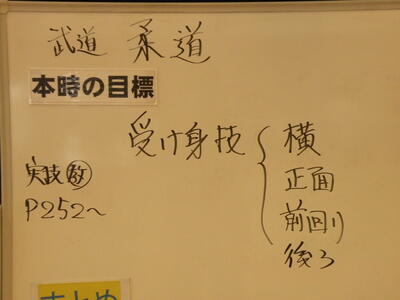 武道 柔道
本時の目標
受け身技
横
正面
前回り
後ろ
実技教
P252~
まとめ